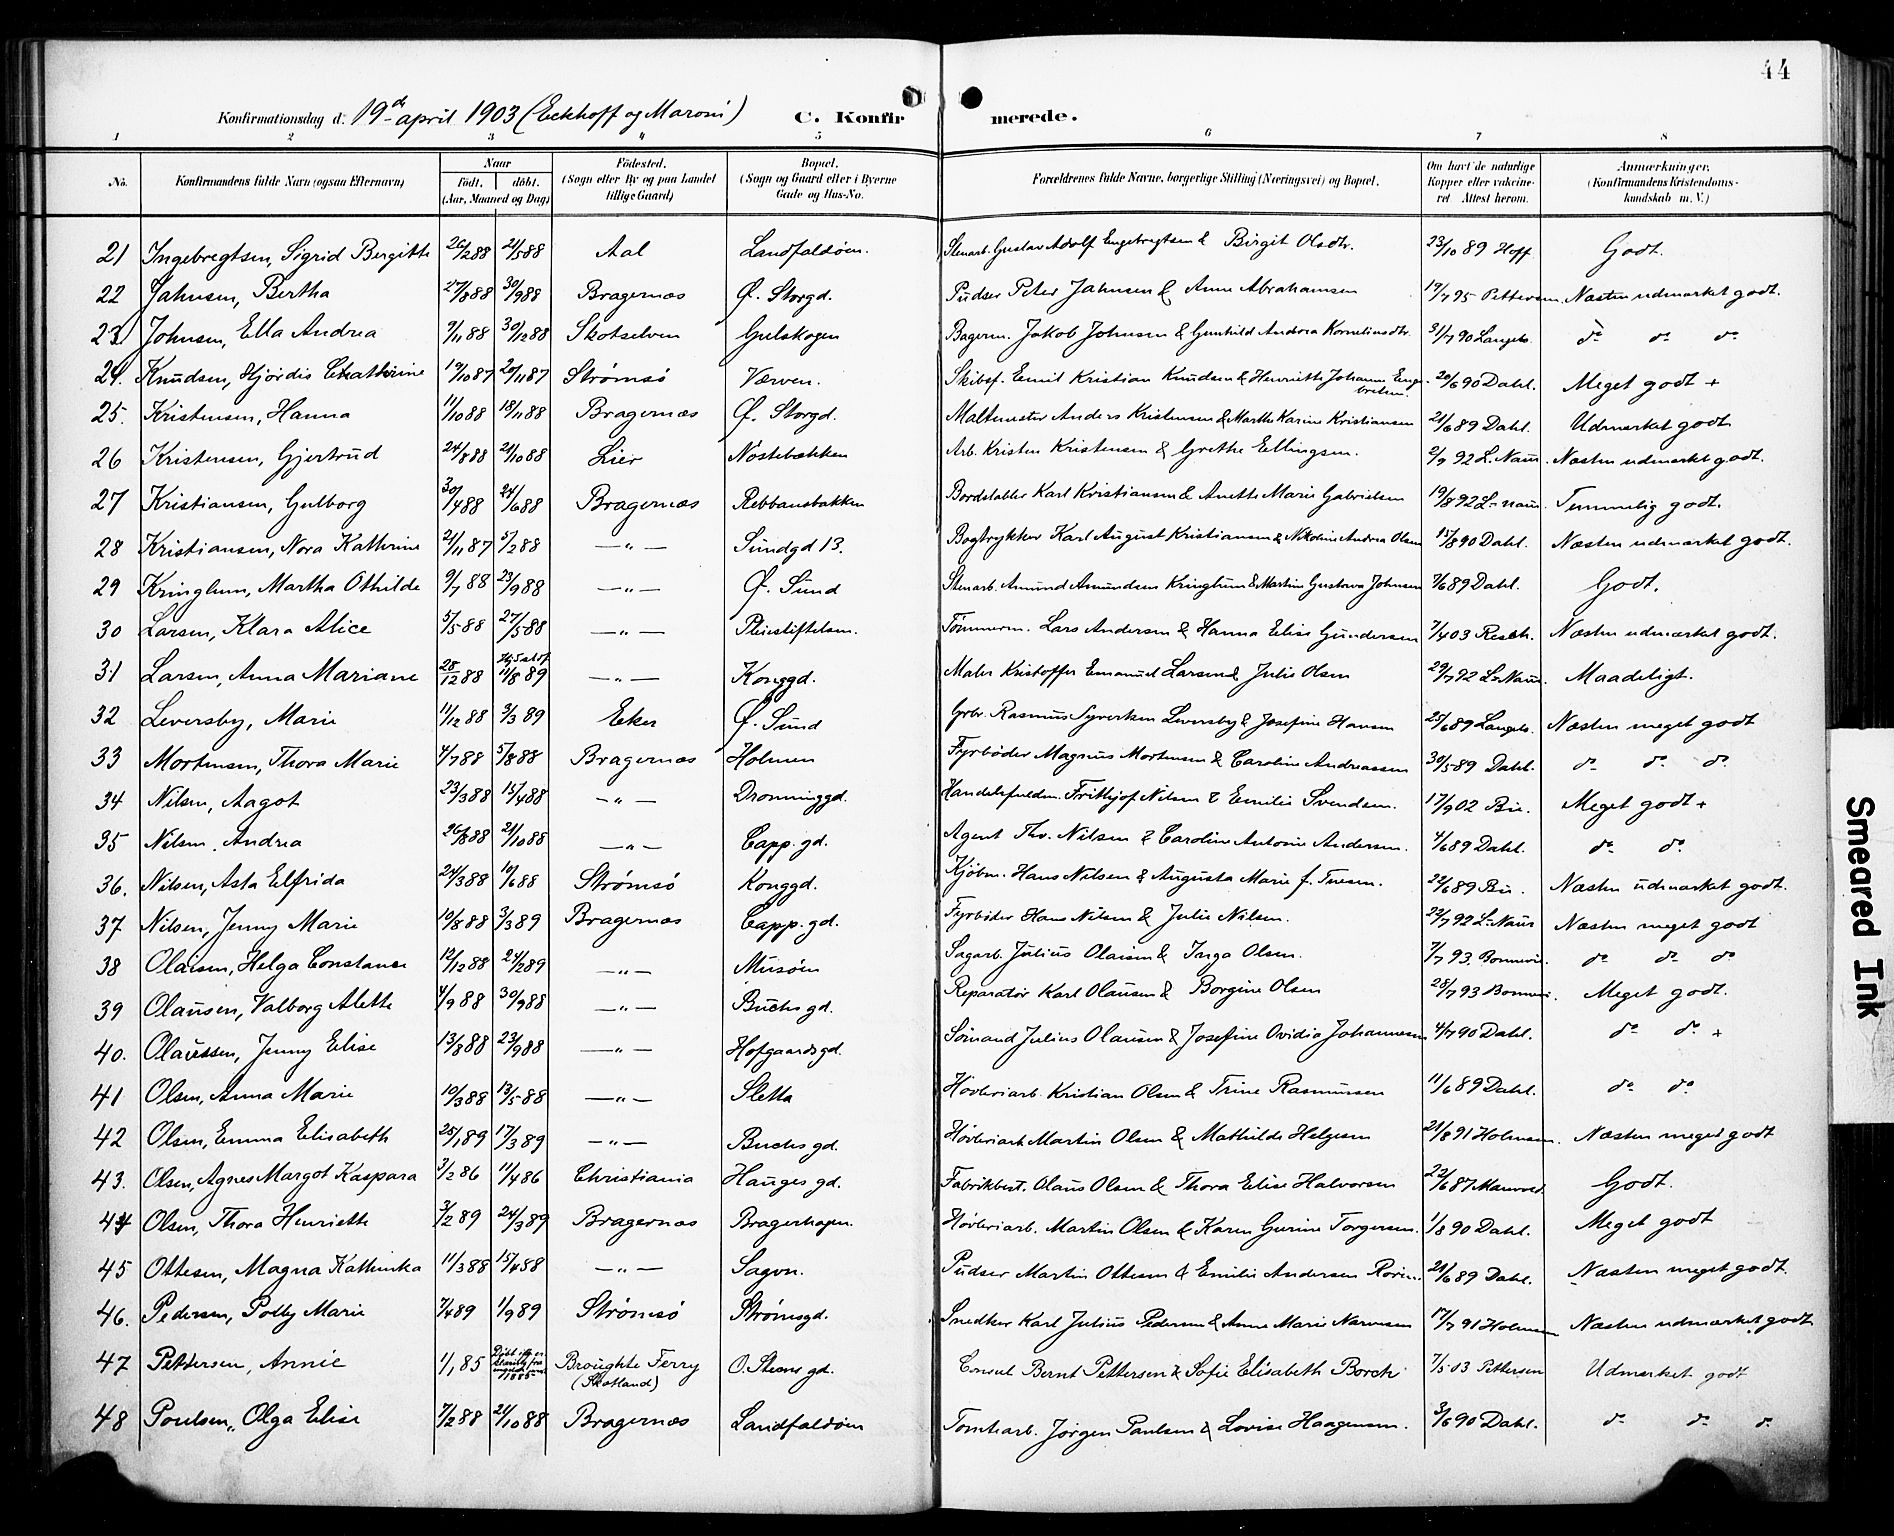 44
Konfirmationsdag d. 19de april 1903 (Eckhoff og Maroni) C. Konfirmerede.
1 2 3 4 5 6 7 8
No. Konfirmandens fulde Navn (ogsaa Efternavn) Naar födt. döbt. (Aar, Maaned og Dag) Födested. (Sogn eller By og paa Landet tillige Gaard) Bopæl. (Sogn og Gaard eller i Byerne Gade og Hus-No. Forældrenes fulde Navne, borgerlige Stilling (Næringsvei) og Bopæl. Om havt de naturlige Kopper eller vakcineret. Attest herom. Anmærkninger. (Konfirmandens Kristendomskundskab m. V.)
21 Ingebregtsen, Sigrid Bergitte 26/2 88 21/5 88 Aal Landfaldöen. Stenarb. Gustav Adolf Engebregtsen & Birgit Olsdtr. 23/10 89 Hoff Godt.
22 Jahnsen, Bertha 27/8 88 30/9 88 Bragernæs Ø. Storgd. Pudser Peter Jahnsen & Anne Abrahamsen 19/7 95 Pettersen Næsten udmærket godt.
23 Johnsen, Ella Andrea 9/11 88 30/12 88 Skotselven Gulskogen Bagerm. Jakob Johnsen & Gunhild Andora Korneliusdtr. 31/7 90 Langeb. do do do
24. Knudsen, Hjördis Chathrine 19/10 87 20/11 87 Strømsö Værven. Skibsf. Emil Kristian Knudsen & Henriette Johanne Engebretsen. 20/6 90 Dahl. Meget godt +
25. Kristensen, Hanna 11/10 88 18/11 88 Bragernæs Ø. Storgd. Maltmester Anders Kristensen & Marthe Karine Kristiansen 21/6 89 Dahl. Udmærket godt
26 Kristensen, Gjertrud 24/8 88 21/10 88 Lier Nöstebækken Arb. Kristen Kristensen & Grethe Ellingsen. 6/9 92 L. Naur. Næsten udmærket godt.
27 Kristiansen, Gulborg 30/4 88 24/6 88 Bragernæs Rebbansbakken Bordstabler Karl Kristiansen & Anette Marie Gabrielsen 19/8 92 L. Naur. Temmelig godt.
28 Kristiansen, Nora Kathrine 21/11 87 5/2 88 —"— Sundgd 13. Bogtrykker Karl August Kristiansen & Nikoline Andrea Olsen 15/8 90 Dahl. Næsten udmærket godt.
29 Kringlum, Martha Othilde 9/7 88 23/9 88 —"— Ø. Sund Stenarb. Amund Amundsen Kringlum & Martine Gustava Johnsen 7/6 89 Dahl. Godt.
30 Larsen, Klara Alice 5/5 88 27/5 88 —"— Pleiestiftelsen. Tömmerm. Lars Andersen & Hanna Elise Gundersen 7/4 03 Resch. Næsten udmærket godt.
31 Larsen, Anna Mariane 28/12 88 11/8 89 —"— Konggd. Maler Kristoffer Emanuel Larsen & Julie Olsen 29/7 92 L. Naur. Maadeligt.
32 Leversby, Marie 11/12 88 3/3 89 Eker Ø. Sund Grbr. Rasmus Syvertsen Leversby & Josefine Hansen 25/6 89 Langeb. Næsten meget godt
33 Mortensen, Thora Marie 4/7 88 5/8 88 Bragernæs Holmen Fyrböder Magnus Mortensen & Caroline Andreassen 30/5 89 Dahl. do do do
34 Nilsen, Aagot 23/3 88 15/4 88 —"— Dronninggd. Handelsfuldm. Frithjof Nilsen & Emilie Svendsen. 17/9 02 Bu. Meget godt +
35 Nilsen, Andrea 26/8 88 21/10 88 —"— Capp. gd. Agent Thv. Nilsen & Caroline Antonie Andersen. 4/6 89 Dahl. do do
36. Nilsen, Asta Elfrida 24/3 88 10/6 88 Strømsö Konggd. Kjöbm. Hans Nilsen & Augusta Marie f. Tuesen. 22/6 89 Bu. Næsten udmærket godt.
37 Nilsen, Jenny Marie 10/8 88 3/3 89 Bragernæs Capp. gd. Fyrböder Hans Nilsen & Julie Nilsen. 22/7 92 L. Naur Næsten meget godt
38 Olaisen, Helga Constanse 12/12 88 24/2 89 —"— Musöen Sagarb. Julius Olaisen & Inga Olsen. 7/7 93. Bonnevie. do do do
39 Olausen, Valborg Alette 4/9 88 30/9 88 —"— Buchs gd. Reparatör Karl Olausen & Borgine Olsen 28/7 93 Bonnevi. Meget godt.
40. Olaussen, Jenny Elise 13/8 88 23/9 88 —"— Hofgaards gd. Sömand Julius Olausen & Josefine Ovidia Johannesen 4/7 90 Dahl. do do +
41 Olsen, Anna Marie 10/3 88 13/5 88 —"— Sletta Hövleriarb. Kristian Olsen & Trine Rasmussen 11/6 89 Dahl. do do
42 Olsen, Emma Elisabeth 25/1 89 17/3 89 —"— Buchs gd. Hövleriarb Martin Olsen & Mathilde Helgesen 21/8 91 Holmsen. Næsten meget godt
43. Olsen, Agnes Margot Kaspara 3/2 86 11/4 86 Christiania Hauges gd. Fabrikbest. Olaus Olsen & Thora Elise Halvorsen 22/6 87 Godt.
44 Olsen, Thora Henriette 3/2 89 24/3 89 Bragernæs Bragerhagen. Hövleriarb. Martin Olsen & Karen Gurine Torgersen. 1/8 90 Dahl. Meget godt
45 Ottesen, Magna Kathinka 11/3 88 15/4 88 —"— Sagvn. Pudser Martin Ottesen & Emilie Andersen 21/6 89 Dahl. Næsten meget godt.
46. Pedersen, Polly Marie 7/4 89 1/9 89 Strømsö Strömsgd. Snedker Karl Julius Pedersen & Anne Marie Narvesen 17/7 91 Holmsen Næsten udmærket godt
47 Pettersen, Annie 1/1 85 1885 Broughte Ferry (Skotland) O. Steens gd. Consul Bernt Pettersen & Sofie Elisabeth Borch 7/5 03 Pettersen Udmærket godt
48 Poulsen, Olga Elise 7/2 88 21/10 88 Bragernæs Landfaldöen Tomtearb. Jörgen Paulsen & Lovise Haagensen. 3/6 90 Dahl. do do do
Smeared Ink